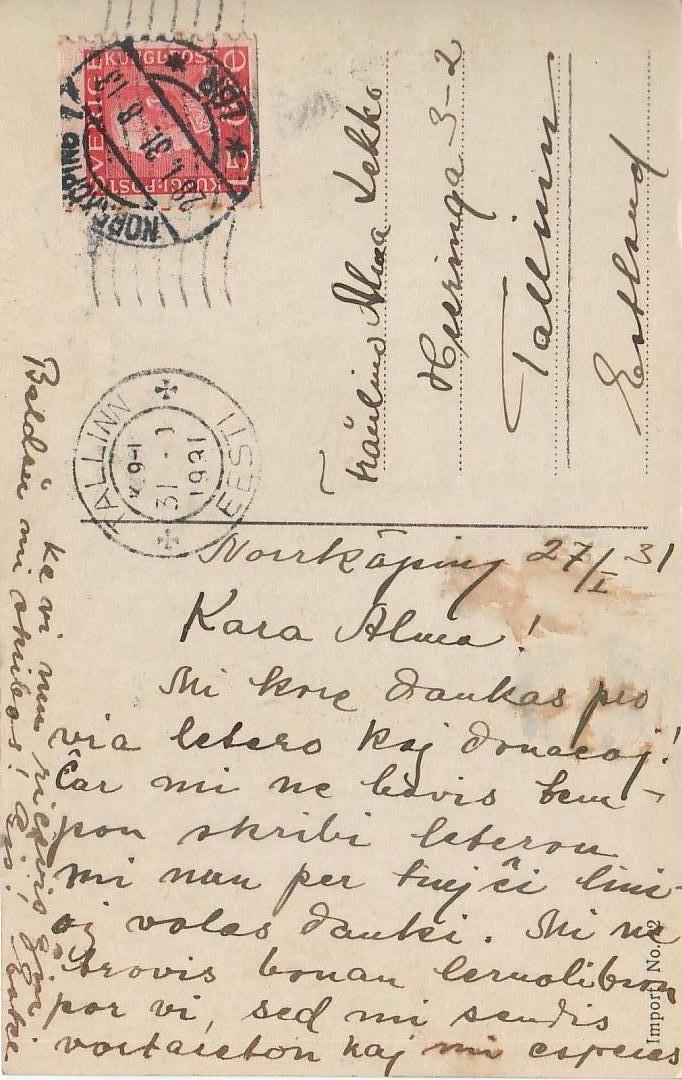 SVERIGE
KUNGL·POST
KUNGL·POST
15
NORRKÖPING 1
28.1.31.-8
LBR
TALLINN
EESTI
31 - 1
1931
Fräulino Alma Lekko
Heeringa 3-2
Tallinn
Estland
Norrköping 27/I 31
Kara Alma!
Mi kore dankas pro
via letero kaj donacoj!
Ĉar mi ne havis tem-
pon skribi leteron
mi nun per tiuj ĉi lini-
oj volas danki. Mi ne
trovis bonan lernolibron
por vi, sed mi sendis
vortareton kaj mi esperas
ke vi nun ricevis ĝin
Baldaŭ mi skribos! Ĝis!
Import. No. 2